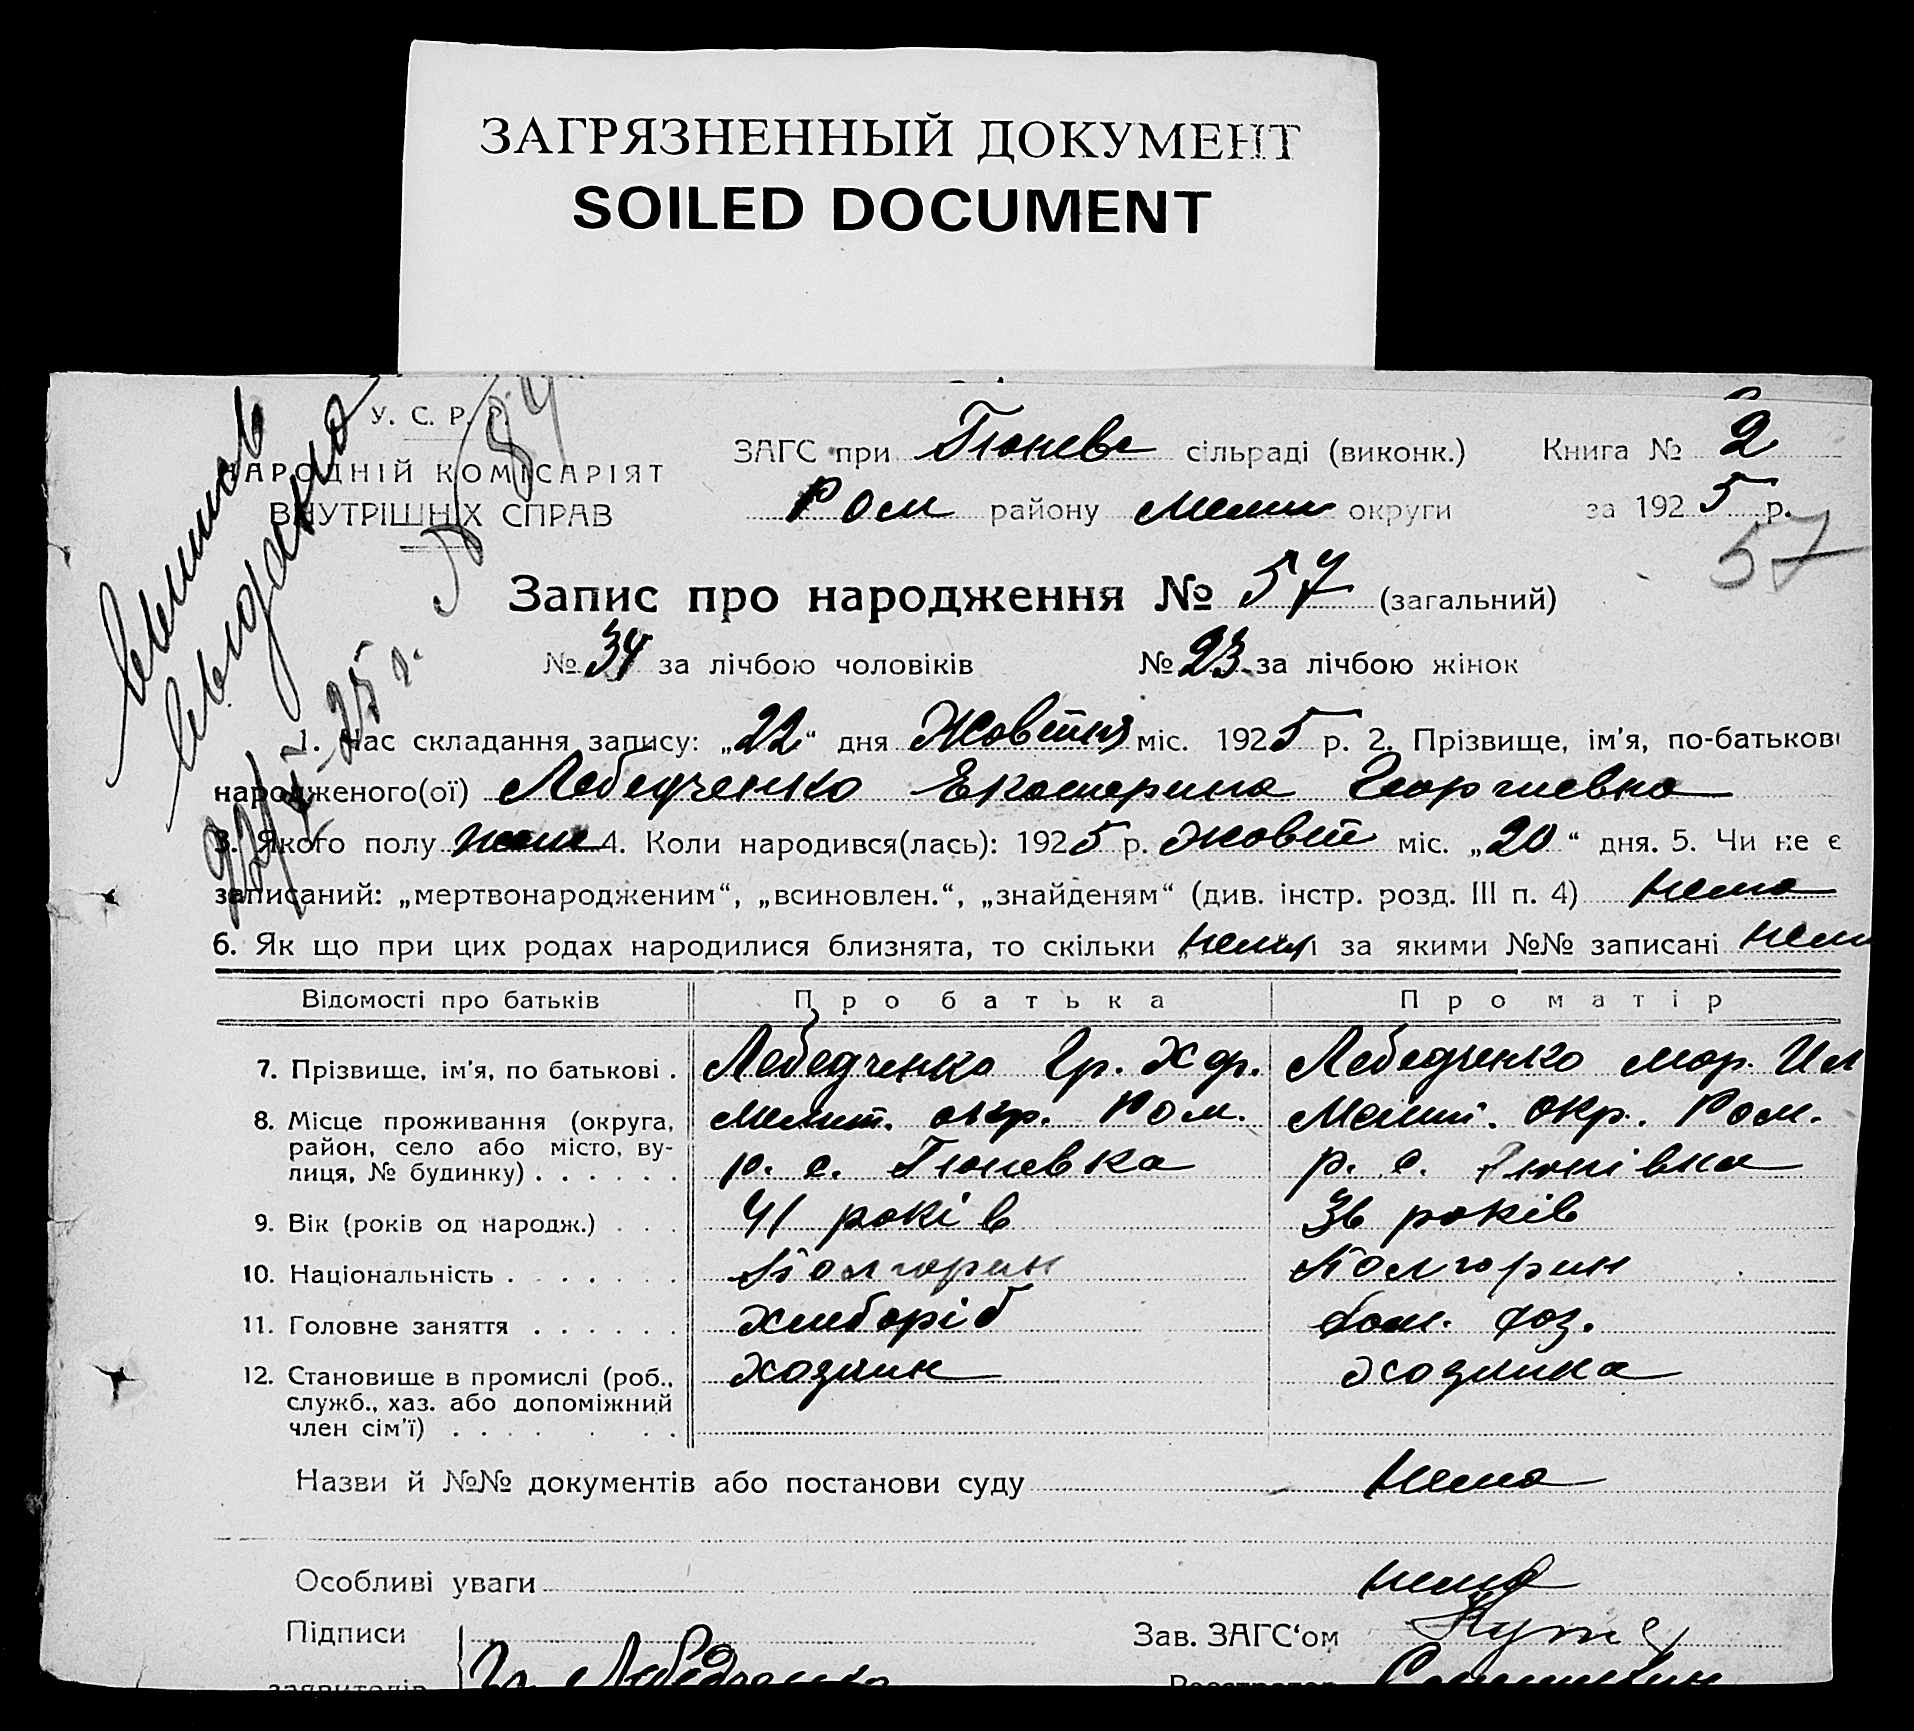 ЗАГРЯЗНЕННЫЙ ДОКУМЕНТ
SOILED DOCUMENT
У. С. Р. Р.
НАРОДНІЙ КОМІСАРІЯТ
ВНУТРІШНІХ СПРАВ
ЗАГС при Гюневс сільраді (виконк.) Книга № 2
Ром району Мелит округи за 1925 р.
57
Запис про народження № 57 (загальний)
№ 34 за лічбою чоловіків № 23 за лічбою жінок
1. Час складання запису: „22“ дня Жовтня міс. 1925 р. 2. Прізвище, ім'я, по-батькові
народженого(ої) Лебедченко Екатерина Георгиевна
3. Якого полу жен 4. Коли народився(лась): 1925 р. жовт міс. „20“ дня. 5. Чи не є
записаний: „мертвонародженим“, „всиновлен.“, „знайденям“ (див. інстр. розд. III п. 4) нема
6. Як що при цих родах народилися близнята, то скільки нема і за якими №№ записані нема
Відомості про батьків Про батька Про матір
7. Прізвище, ім'я, по батькові . Лебедченко Гр. Хф. Лебедченко Мар. Ил
8. Місце проживання (округа, Мелит. окр. Ром. Мелит. окр. Ром.
район, село або місто, ву-
лиця, № будинку) . . . . . . р. с. Гюневка р. с. Гюнівка
9. Вік (років од народж.) . . . 41 років 36 років
10. Національність . . . . . . . Болгарин Болгарин
11. Головне заняття . . . . . . хлібороб дом. хоз.
12. Становище в промислі (роб., хозяин хозяика
служб., хаз. або допоміжний
член сім'ї) . . . . . . .
Назви й №№ документів або постанови суду нема
Особливі уваги нема
Підписи Зав. ЗАГС'ом
заявителів Гр. Лебедченко Реєстратор